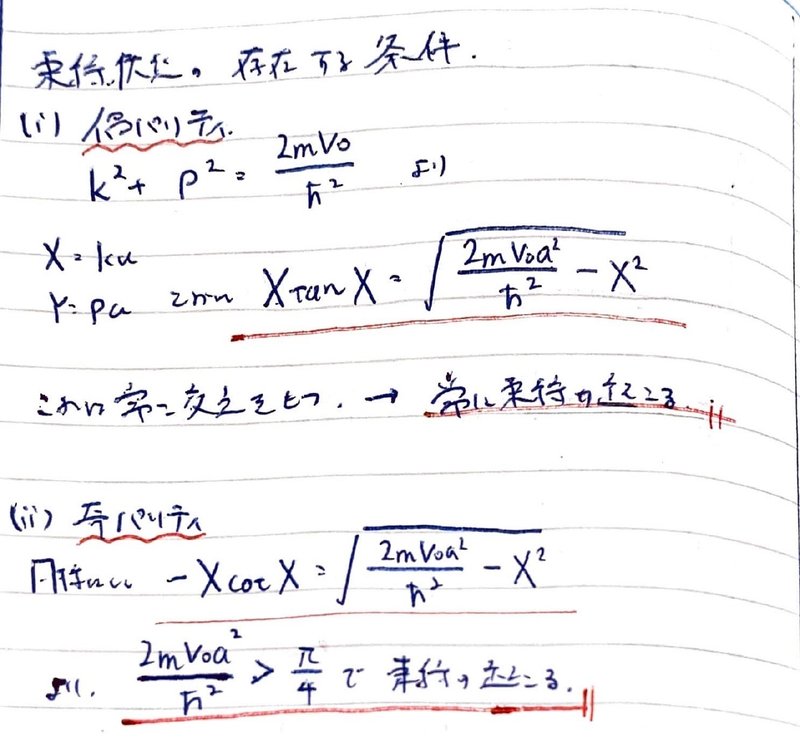 束縛状態の存在する条件.
(i) 偶パリティ.
k² + ρ² = 2mV₀/ħ² より
X = ka
Y = ρa として X tan X = √(2mV₀a²/ħ² − X²)
これは常に交点をもつ. → 常に束縛が起こる.
(ii) 奇パリティ
同様にして − X cot X = √(2mV₀a²/ħ² − X²)
より. 2mV₀a²/ħ² > π/4 で 束縛が起こる.